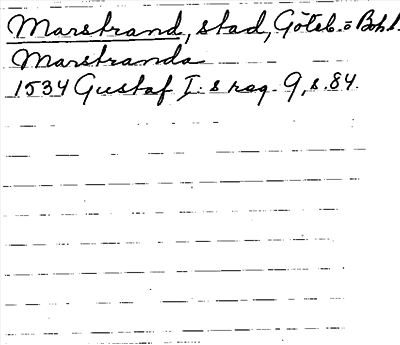 Marstrand, stad, Göteb. o Boh. l.
Marstranda
1534 Gustaf I:s reg. 9, s. 84.